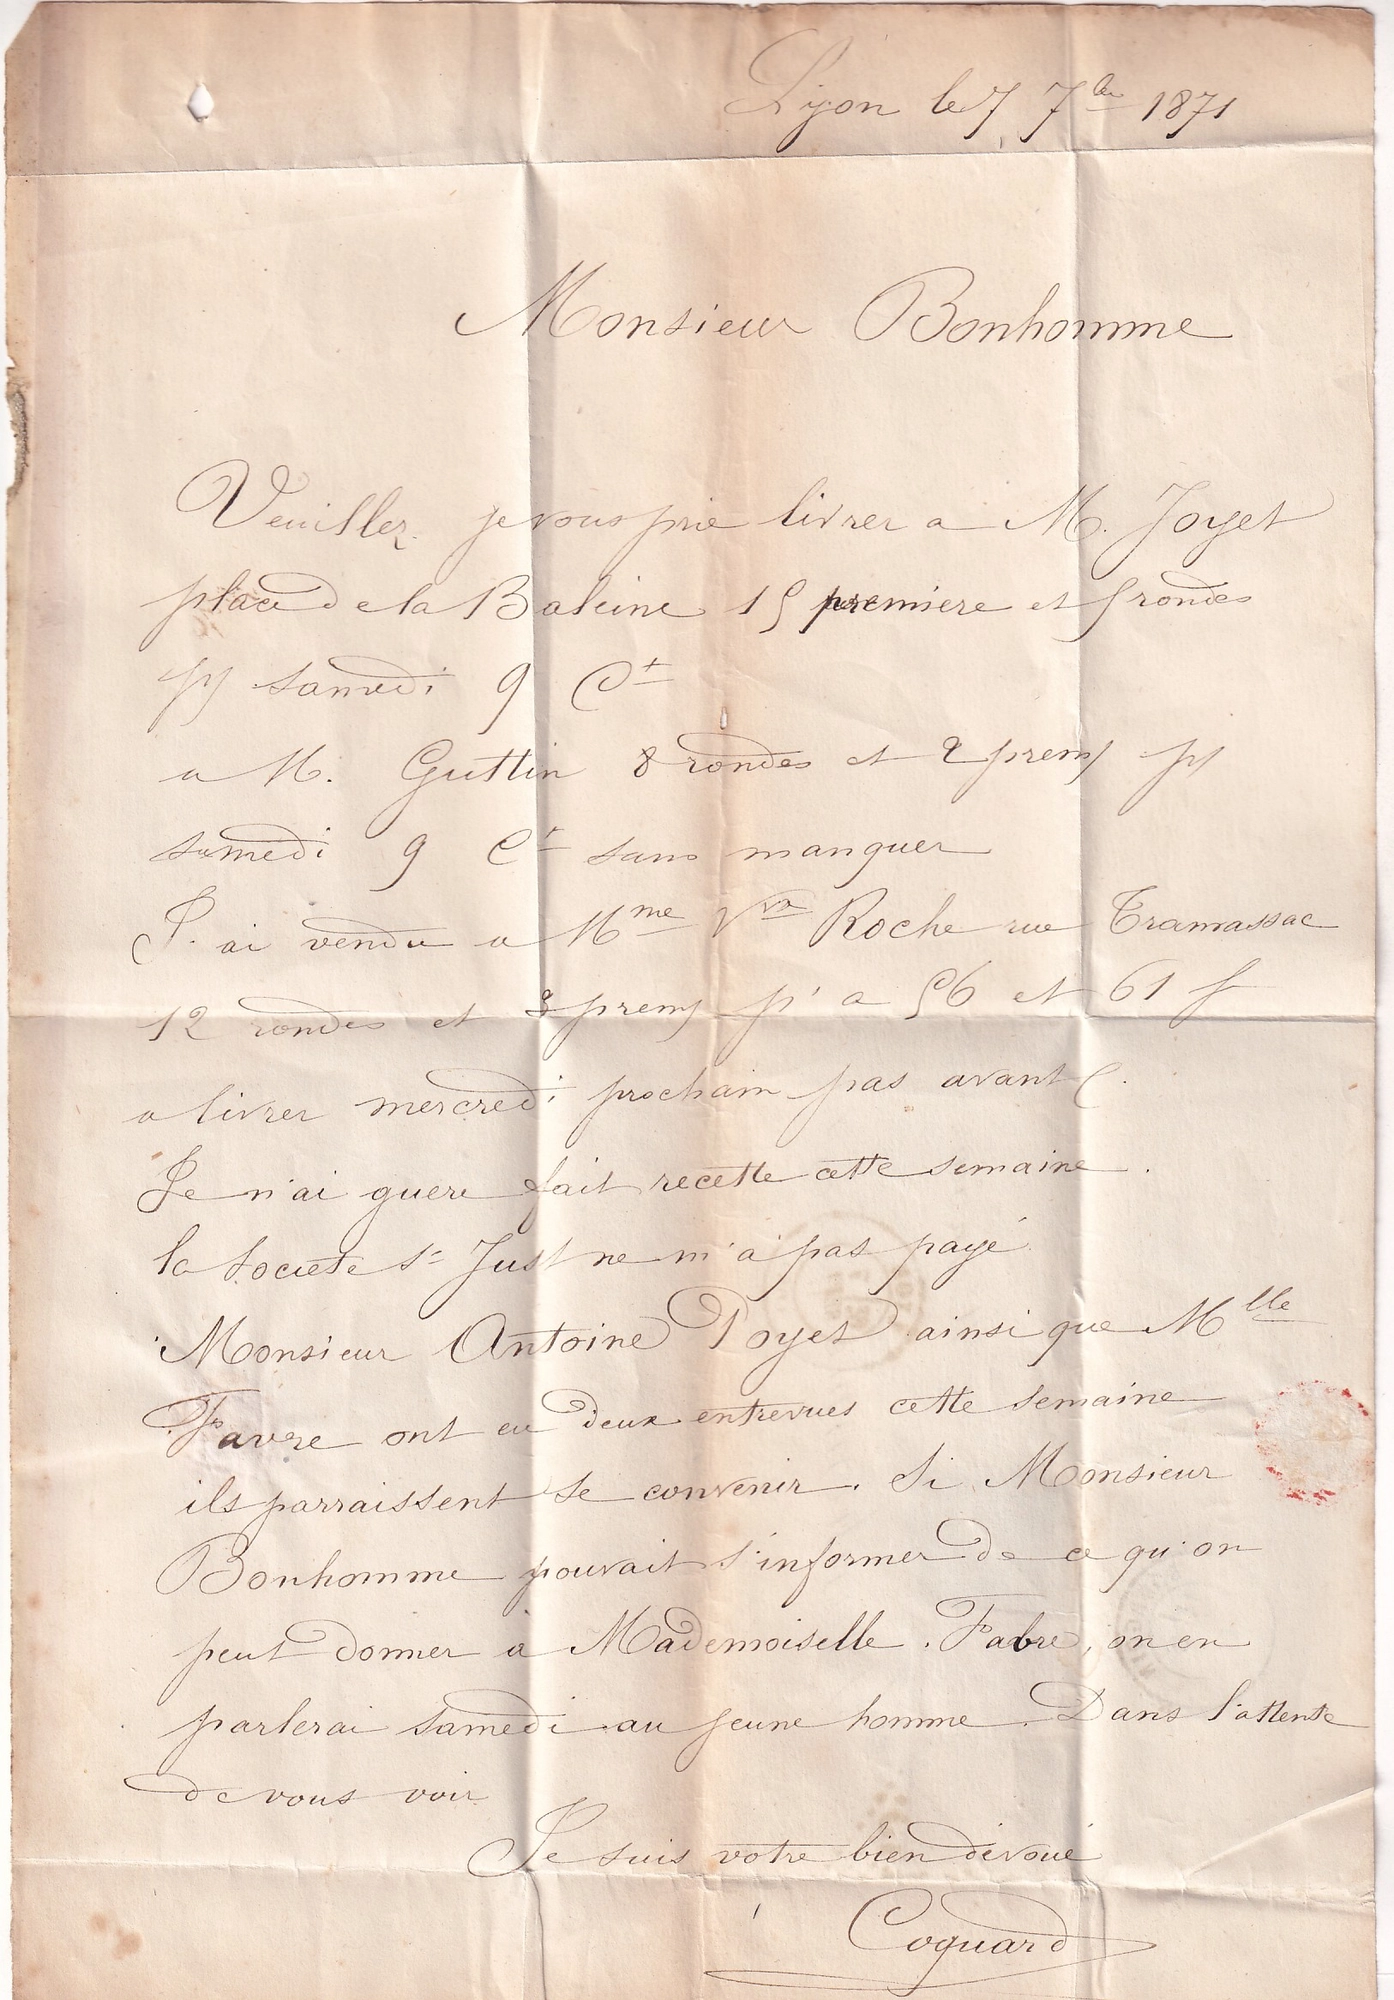 Lyon le 7 7bre 1871
Monsieur Bonhomme
Veuillez je vous prie livrer a M. Joyet
place de la Baleine 15 premiere et 5 rondes
pr samedi 9 Ct
a M. Guttin 8 rondes et 2 prem/ pr
samedi 9 Ct sans manquer
J'ai vendu a Mme Vve Roche rue Tramassac
12 rondes et 3 prem/ pr a 56 et 61 f
a livrer mercredi prochain pas avant
Je n'ai guere fait recette cette semaine.
la Societe St Just ne m'a pas payé
Monsieur Antoine Poyet ainsi que Mlle
Favre ont eu deux entrevues cette semaine
ils parraissent se convenir. Si Monsieur
Bonhomme pouvait s'informer de ce qu'on
peut donner à Mademoiselle. Fabre, on en
parlerai samedi au jeune homme. Dans l'attente
de vous voir
Je suis votre bien dévoué
Coquard